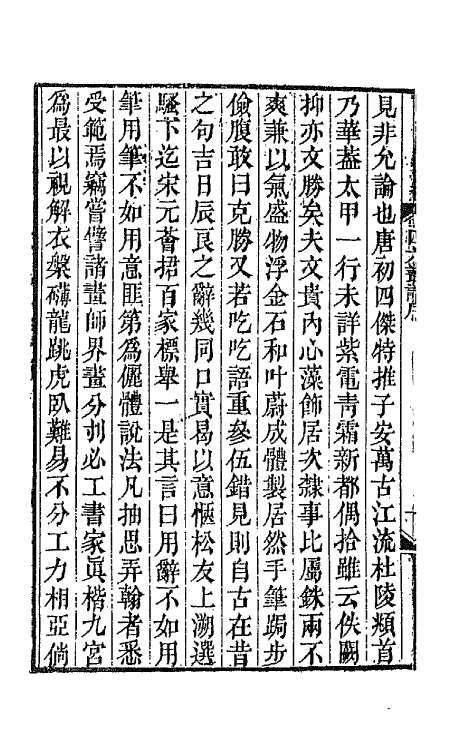 見非允論也唐初四傑特推子安萬古江流杜陵頫首
乃華蓋太甲一行未詳紫電青霜新都偶拾雖云佚闕
抑亦文勝矣夫文貴內心藻飾居次隸事比屬銖兩不
爽兼以氣盛物浮金石和叶蔚成體製居然手筆跼步
儉腹敢曰克勝又若吃吃語重參伍錯見則自古在昔
之句吉日辰良之辭幾同口實曷以意愜松友上溯選
騷下迄宋元薈捃百家標舉一是其言曰用辭不如用
筆用筆不如用意匪第為儷體說法凡抽思弄翰者悉
受範焉竊嘗譬諸畫師界畫分刌必工書家眞楷九宮
爲最以視解衣槃礴龍跳虎臥難易不分工力相亞倘